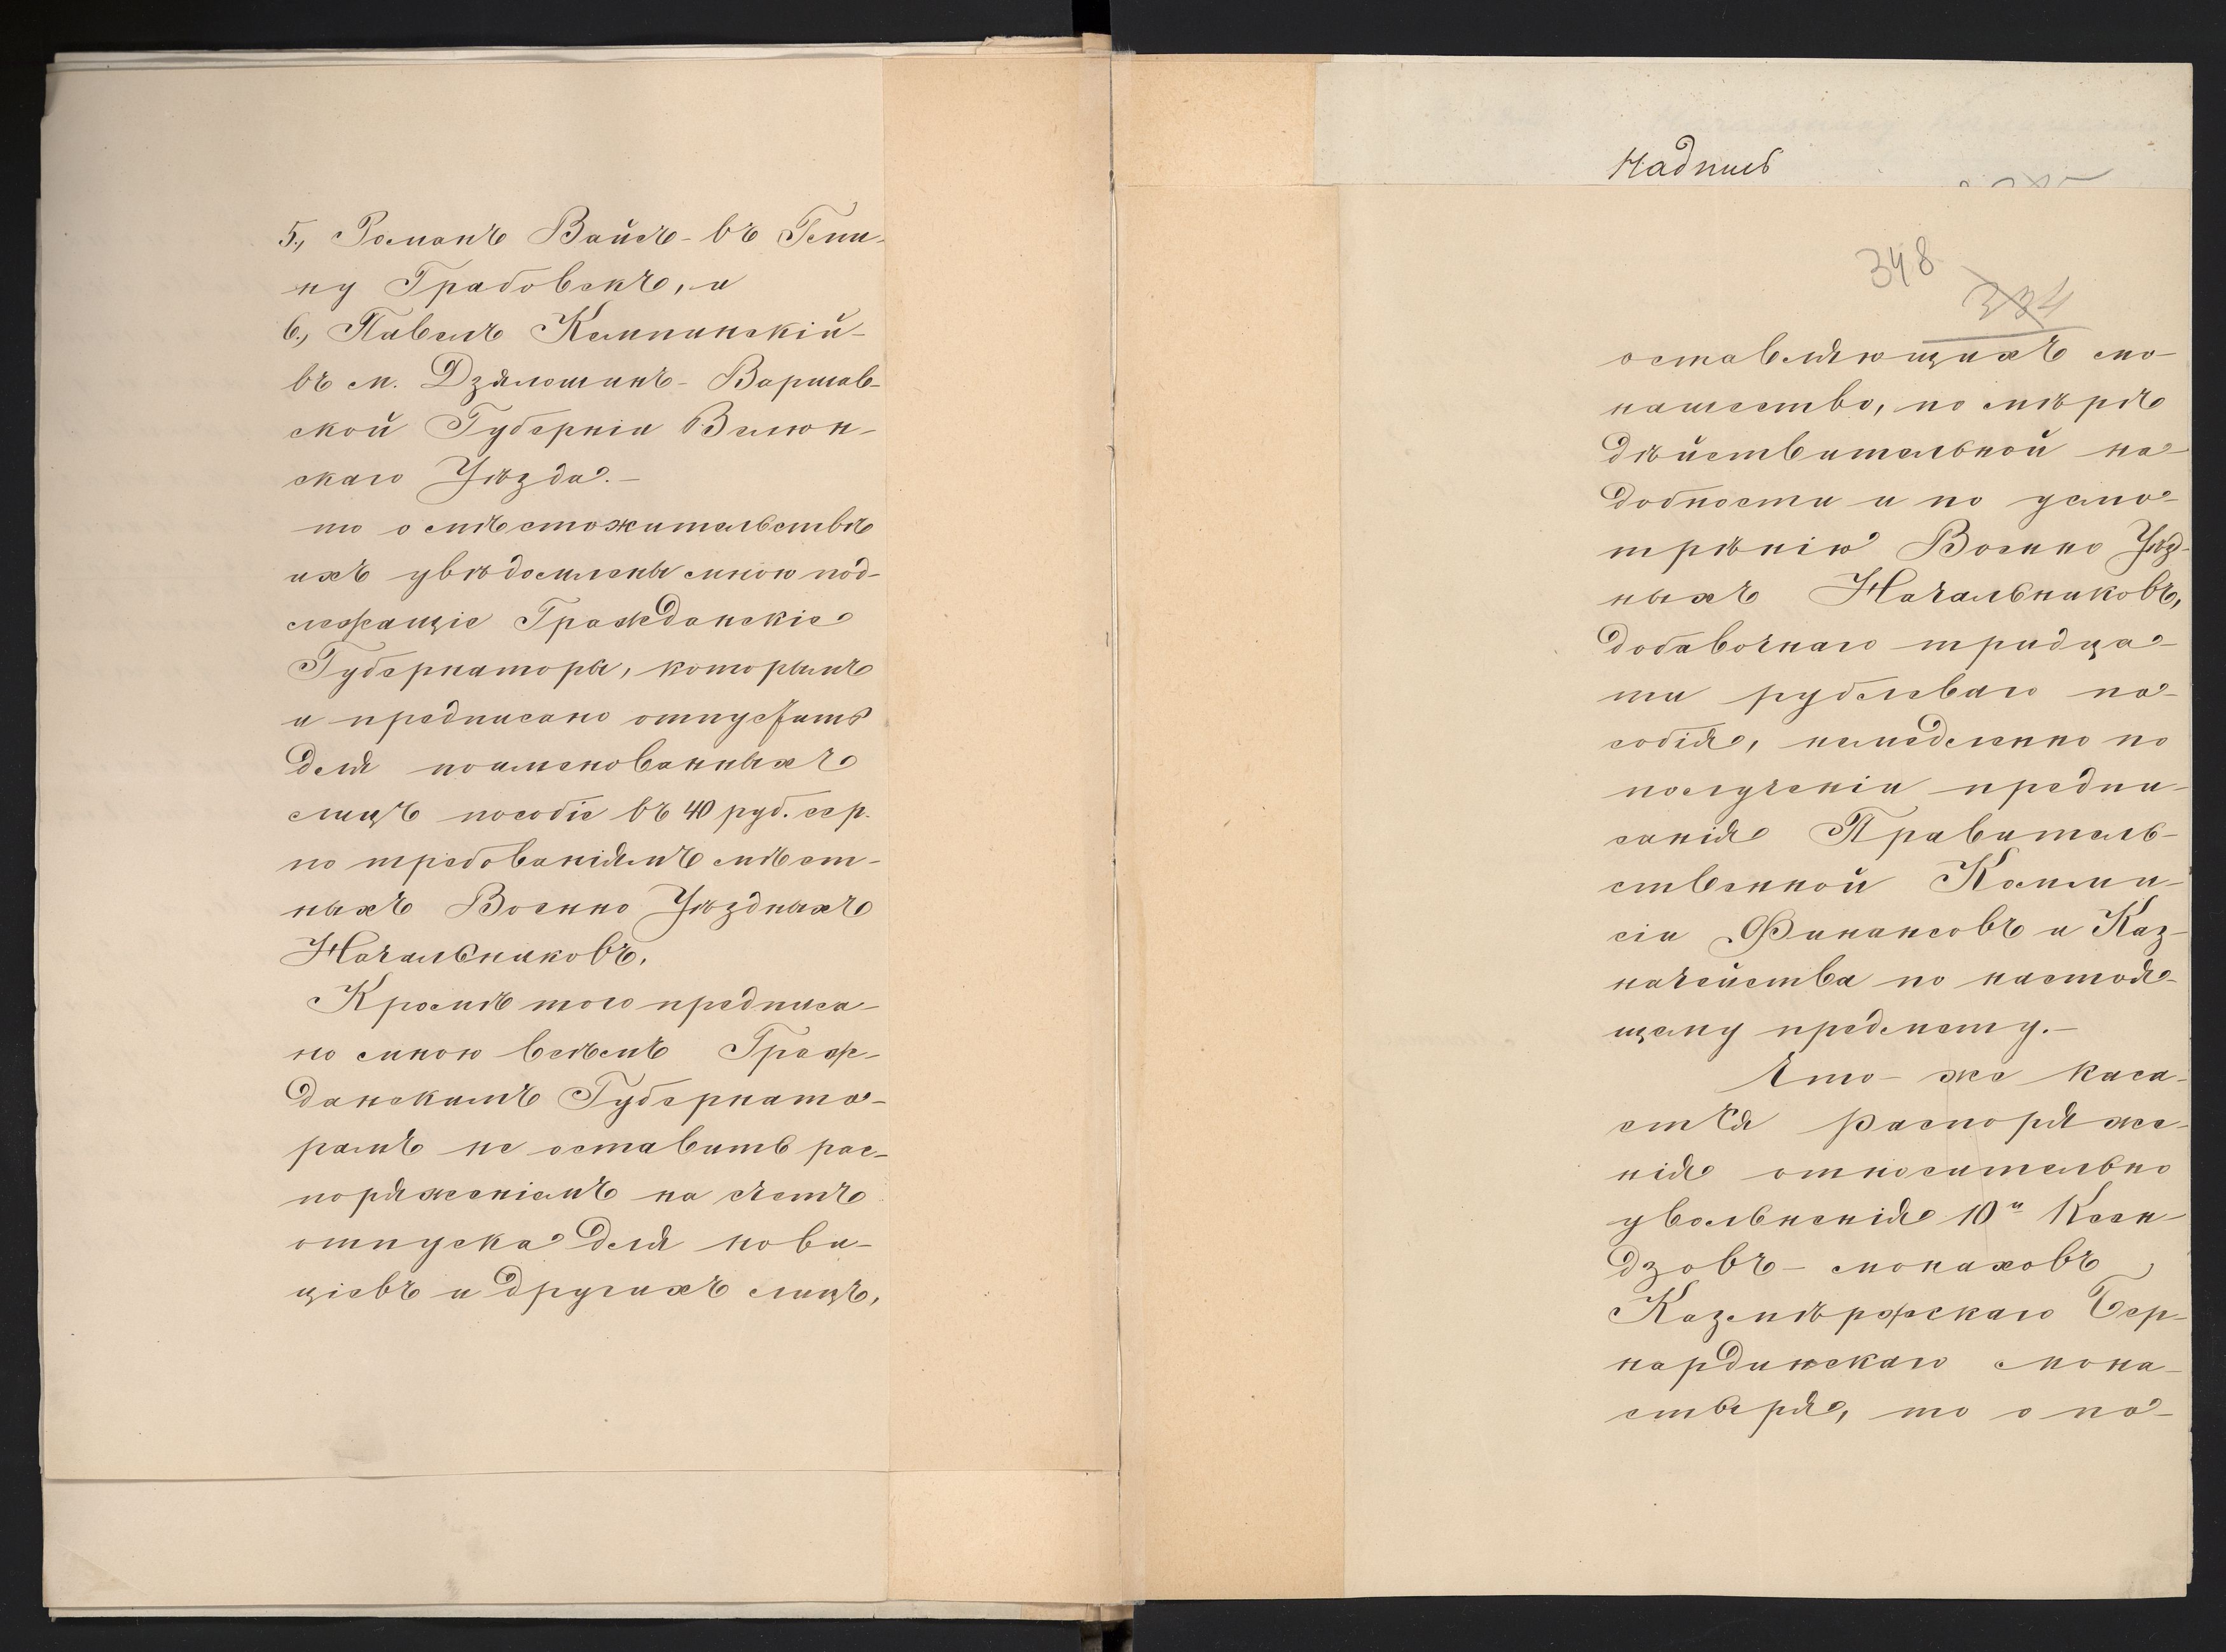 5., Романъ Вайсъ - въ Гми-
ну Грабовскъ, и
6., Павелъ Кемпинскій -
въ м. Дзялошинъ - Варшав-
ской Губерніи Велюн-
скаго Уѣзда. -
то о мѣстожительствѣ
ихъ увѣдомлены мною под-
лежащіе Гражданскіе
Губернаторы, которымъ
и предписано отпускать
для поименованныхъ
лицъ пособіе въ 40 руб. сер.
по требованіямъ мѣст-
ныхъ Военно Уѣздныхъ
Начальниковъ.
Кромѣ того предписа-
но мною всѣмъ Граж-
данскимъ Губернато-
рамъ не оставить рас-
поряженіемъ на счетъ
отпуска для нови-
ціевъ и другихъ лицъ,
Надпись
348
334
оставляющихъ мо-
нашество, по мѣрѣ
дѣйствительной на-
добности и по усмо-
трѣнію Военно Уѣзд-
ныхъ Начальниковъ,
добавочнаго тридца-
ти рублеваго по-
собія, немедленно по
полученіи предпи-
санія Правитель-
ственной Комми-
сіи Финансовъ и Каз-
начейства по настоя-
щему предмету. -
Что - же каса-
ется распоряже-
нія относительно
увольненія 10и Ксен-
дзовъ - монаховъ
Казимѣржскаго Бер-
нардинскаго мона-
стыря, то о по-